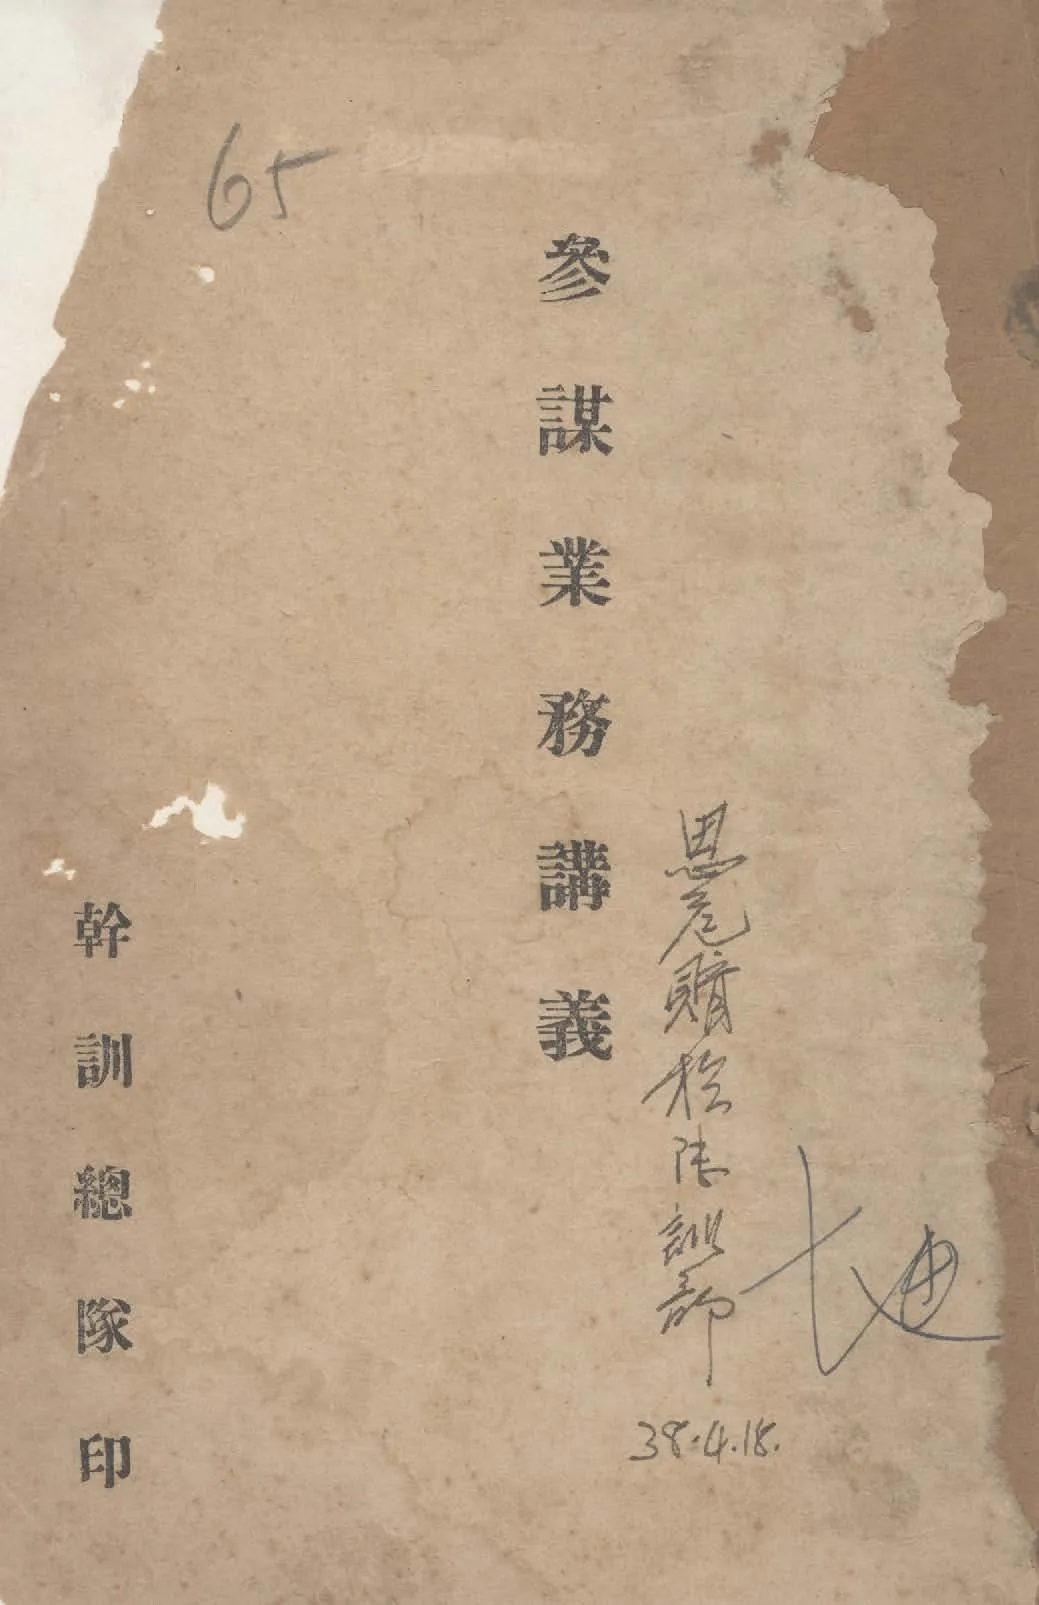 65
參謀業務講義
恩 贈於陸訓部
38.4.18.
幹訓總隊印